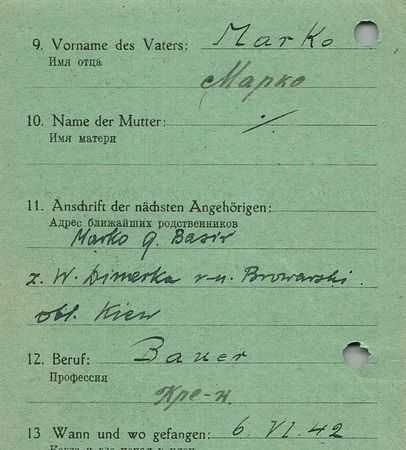 9. Vorname des Vaters: Marko
Имя отца
Марко
10. Name der Mutter: ./.
Имя матери
11. Anschrift der nächsten Angehörigen:
Адрес ближайших родственников
Marko G. Basir
z. W. Dimerka r-n. Browarski.
obl. Kiew
12. Beruf: Bauer
Профессия
Кре-н.
13 Wann und wo gefangen: 6. VI. 42
Когда и где попал в плен